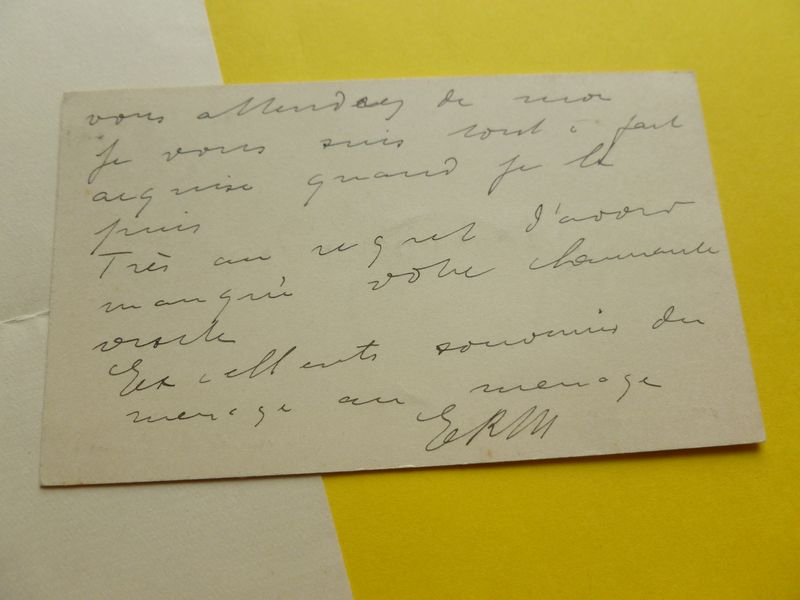 vous attendez de moi
Je vous suis tout à fait
acquise quand je le
puis
Très au regret d'avoir
manqué votre charmante
visite
Excellents souvenirs du
menage au menage
ERM